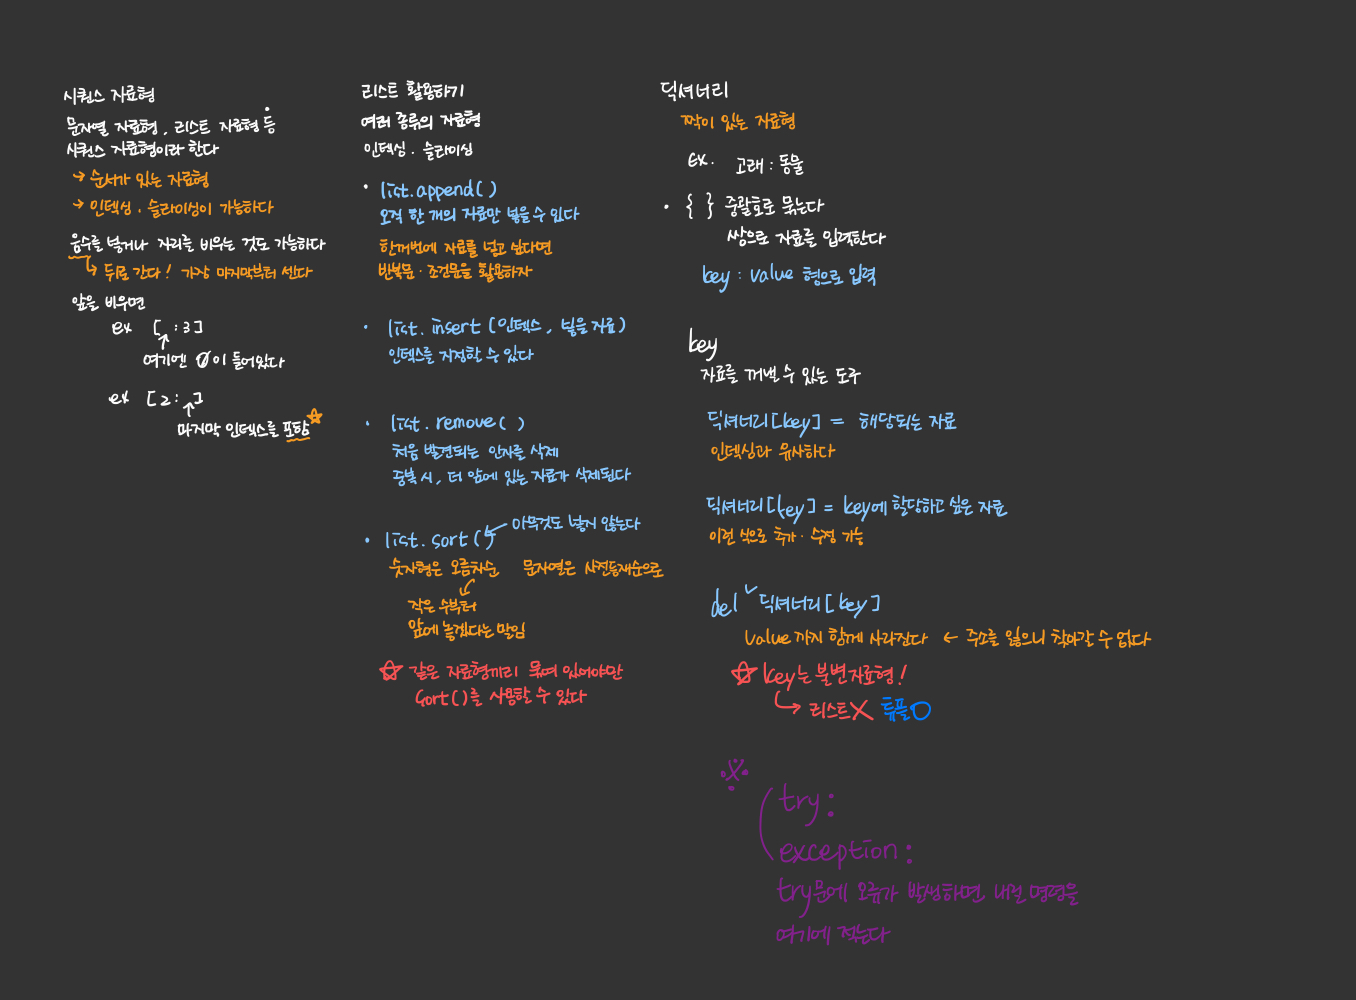 시퀀스 자료형
문자열 자료형, 리스트 자료형 등
시퀀스 자료형이라 한다
→ 순서가 있는 자료형
→ 인덱싱, 슬라이싱이 가능하다
음수를 넣거나 자리를 비우는 것도 가능하다
↳ 뒤로 간다! 가장 마지막부터 센다
앞을 비우면
ex [ : 3]
여기엔 0이 들어있다
ex [2: ]
마지막 인덱스를 포함 ☆
리스트 활용하기
여러 종류의 자료형
인덱싱 · 슬라이싱
• list.append( )
오직 한 개의 자료만 넣을 수 있다
한꺼번에 자료를 넣고 싶다면
반복문 · 조건문을 활용하자
• list.insert (인덱스, 넣을 자료)
인덱스를 지정할 수 있다
• list.remove( )
처음 발견되는 인자를 삭제
중복 시, 더 앞에 있는 자료가 삭제된다
• list.sort( ) ← 아무것도 넣지 않는다
숫자형은 오름차순 문자열은 사전등재순으로
작은 수부터
앞에 놓겠다는 말임
☆ 같은 자료형끼리 묶여 있어야만
sort()를 사용할 수 있다
딕셔너리
짝이 있는 자료형
ex. 고래 : 동물
• { } 중괄호로 묶는다
쌍으로 자료를 입력한다
key : value 형으로 입력
key
자료를 꺼낼 수 있는 도구
딕셔너리[key] = 해당되는 자료
인덱싱과 유사하다
딕셔너리[key] = key에 할당하고 싶은 자료
이런 식으로 추가 · 수정 가능
del ✓ 딕셔너리[key]
value까지 함께 사라진다 ← 주소를 잃으니 찾아갈 수 없다
☆ key는 불변자료형!
↳ 리스트X 튜플O
※
try :
exception :
try문에 오류가 발생하면 내릴 명령을
여기에 적는다